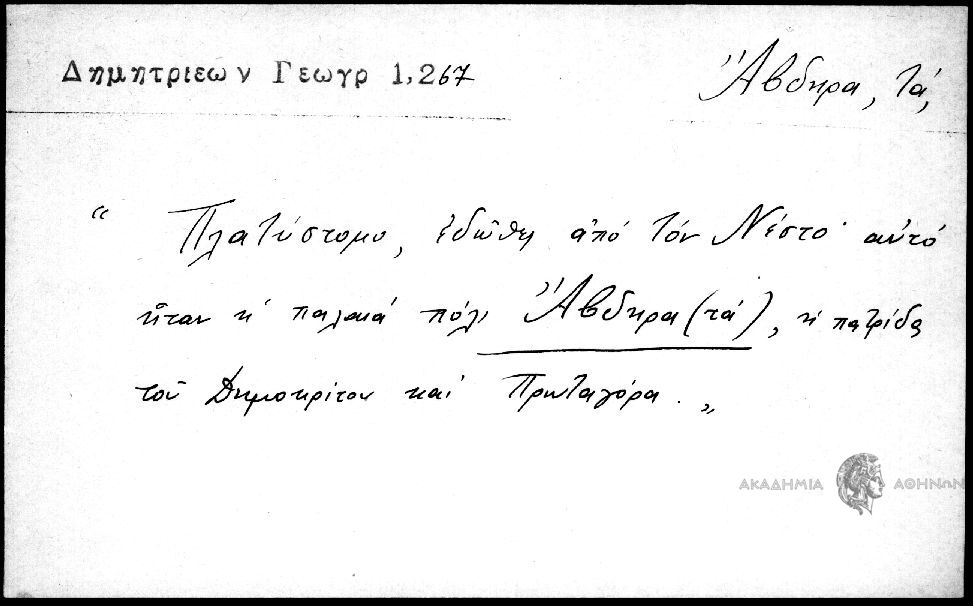 Δημητριεων Γεωγρ 1,267
Ἄβδηρα, τά,
“ Πλατύστομο, ἐδῶθε ἀπό τόν Νέστο· αὐτό
ἦταν ἡ παλαιά πόλι Ἄβδηρα (τά), ἡ πατρίδα
τοῦ Δημοκρίτου καί Πρωταγόρα. „
ΑΚΑΔΗΜΙΑ ΑΘΗΝΩΝ